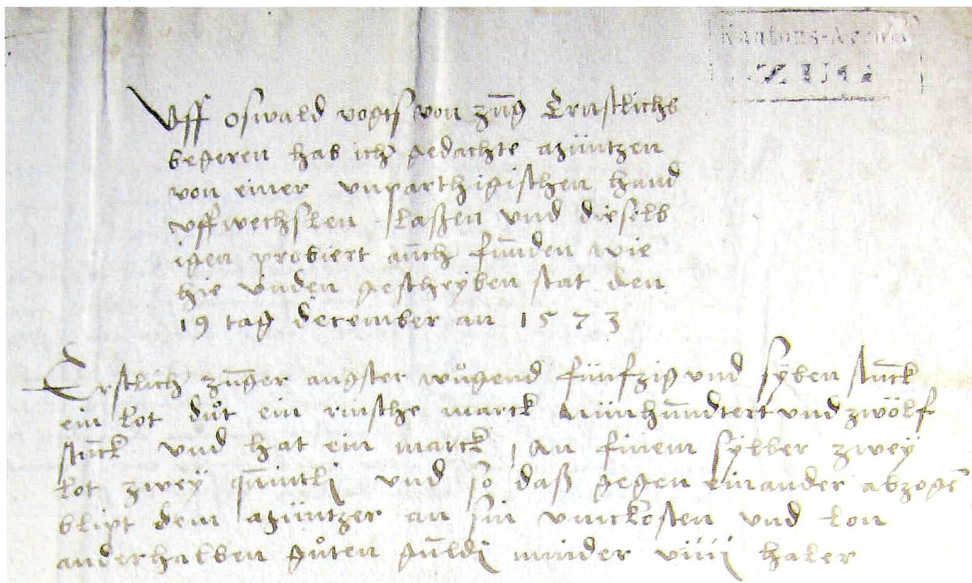 Kantons-Archiv
ZUG
Uff oswald vogts von zug Ernstlichs
begeren hab ich gedachte müntzen
von einer unparthigischen hand
uffwechslen laßen und dieselb
igen probiert auch funden wie
hie unden geschryben stat den
19 tag december an 1573
Erstlich zuger angster wůgend fünfzig und syben stuck
ein lot důt ein rinsche marck nünhundtert und zwölf
stuck und hat ein marck an finem sylber zwey
lot zwey quintli und so daß gegen einander abzogē
blipt dem müntzer an sin umckosten und lon
anderhalben gůten guldi minder viiii haler